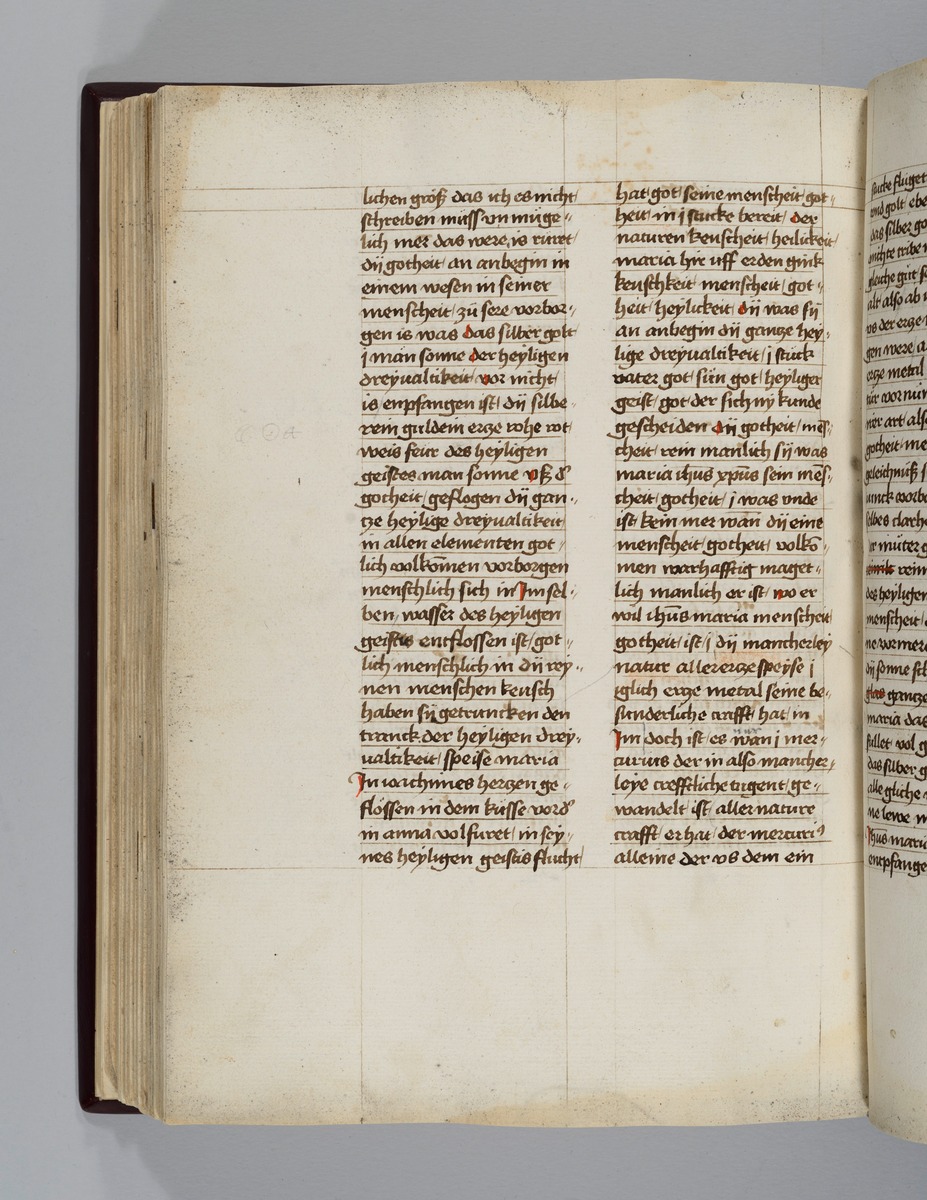 lichen gröſß das ich es nicht
schreiben müss vn müge⸗
lich mer das were, is ruret
dÿ gotheit an anbegin in
einem wesen in seiner
menscheit zü sere vorbor⸗
gen is was das silber golt
j man sonne der heyligen
dreyualtikeit vor nicht
is enpfangen ist dÿ silbe⸗
rein guldein ercze rohe rot
weis feür des heyligen
geistes man sonne vß d'
gotheit geflogen dÿ gan⸗
tze heylige dreyualtikeit
in allen elementen got⸗
lich volkōmen vorborgen
menschlich sich in Im sel⸗
ben wasser des heyligen
geistis entflossen ist got⸗
lich menschlich in dÿ rey⸗
nen menschen keusch
haben sÿ getruncken den
tranck der heyligen drey⸗
ualtikeit speise maria
In ioachimes hertzen ge⸗
flossen in dem küsse vord'
in anna volfuret in sey⸗
nes heyligen geistis flucht
hat got seine menscheit got⸗
heit in j stucke bereit der
naturen keuscheit heilickeit
maria hir uff erden ginck
keuschkeit menscheit got⸗
heit heylickeit dÿ was sÿ
an anbegin dÿ gantze hey⸗
lige dreyualtikeit j stück
vater got sün got heyliger
geist got der sich nÿ kunde
gescheiden dÿ gotheit mēs⸗
cheit rein manlich sÿ was
maria ihus xpūs sein mēs⸗
cheit gotheit j was vnde
ist kein mer wān dÿ eine
menscheit gotheit volkō⸗
men warhafftig maget⸗
lich manlich er ist wo er
wil ihūs maria menscheit
gotheit ist j dÿ mancherley
natur aller ercze speÿse j
iglich ercze metal seine be⸗
sunderliche crafft hat in
Im doch ist es wan j mer⸗
curius der in also mancher⸗
leye creffliche tugent ge⸗
wandelt ist aller nature
crafft er hat der mercuri⁹
alleine der vs dem ein
stucke fluget
vnd golt ebe
das silber go
alt also ab
vs der ercze
gen were a
ercze metal
ner art also
gotheit me
geleichnüß j
des heyligen
menscheit
maria das
das silber g
alle gliche
ihus maria
entpfange